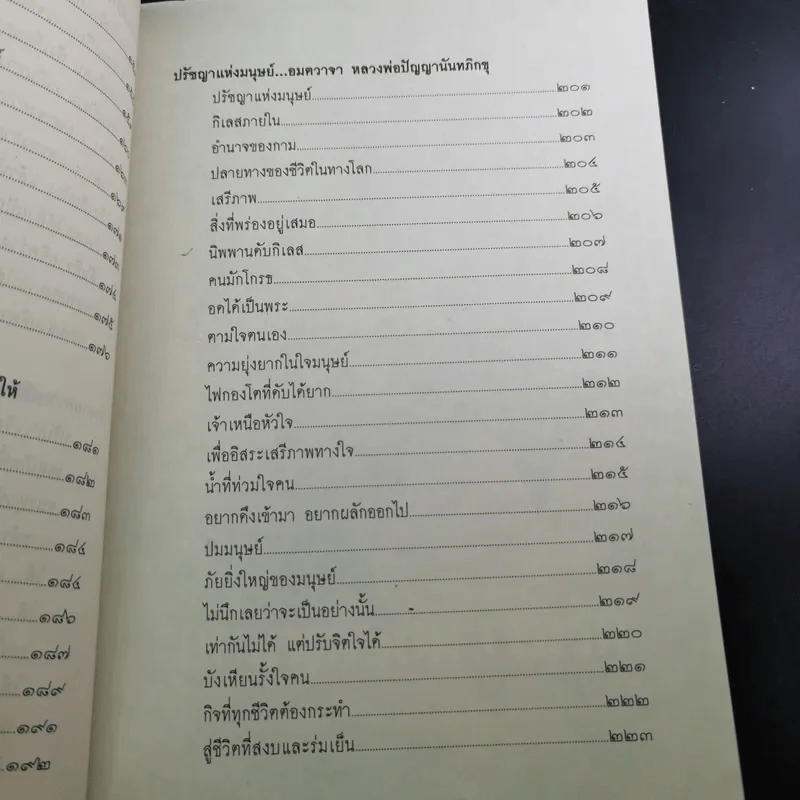 ๑๖๗
๑๗๑
๑๗๓
๑๗๔
๑๗๕
๑๗๖
ให้
๑๘๑
๑๘๒
๑๘๓
๑๘๔
๑๘๔
๑๘๖
๑๘๗
๑๘๙
๑๙๑
๑๙๒
ปรัชญาแห่งมนุษย์...อมตวาจา หลวงพ่อปัญญานันทภิกขุ
ปรัชญาแห่งมนุษย์...๒๐๑
กิเลสภายใน...๒๐๒
อำนาจของกาม...๒๐๓
ปลายทางของชีวิตในทางโลก...๒๐๔
เสรีภาพ...๒๐๕
สิ่งที่พร่องอยู่เสมอ...๒๐๖
นิพพานดับกิเลส...๒๐๗
คนมักโกรธ...๒๐๘
อดได้เป็นพระ...๒๐๙
ตามใจตนเอง...๒๑๐
ความยุ่งยากในใจมนุษย์...๒๑๑
ไฟกองโตที่ดับได้ยาก...๒๑๒
เจ้าเหนือหัวใจ...๒๑๓
เพื่ออิสระเสรีภาพทางใจ...๒๑๔
น้ำที่ท่วมใจคน...๒๑๕
อยากดึงเข้ามา อยากผลักออกไป...๒๑๖
ปมมนุษย์...๒๑๗
ภัยยิ่งใหญ่ของมนุษย์...๒๑๘
ไม่นึกเลยว่าจะเป็นอย่างนั้น...๒๑๙
เท่ากันไม่ได้ แต่ปรับจิตใจได้...๒๒๐
บังเหียนรั้งใจคน...๒๒๑
กิจที่ทุกชีวิตต้องกระทำ...๒๒๒
สู่ชีวิตที่สงบและร่มเย็น...๒๒๓